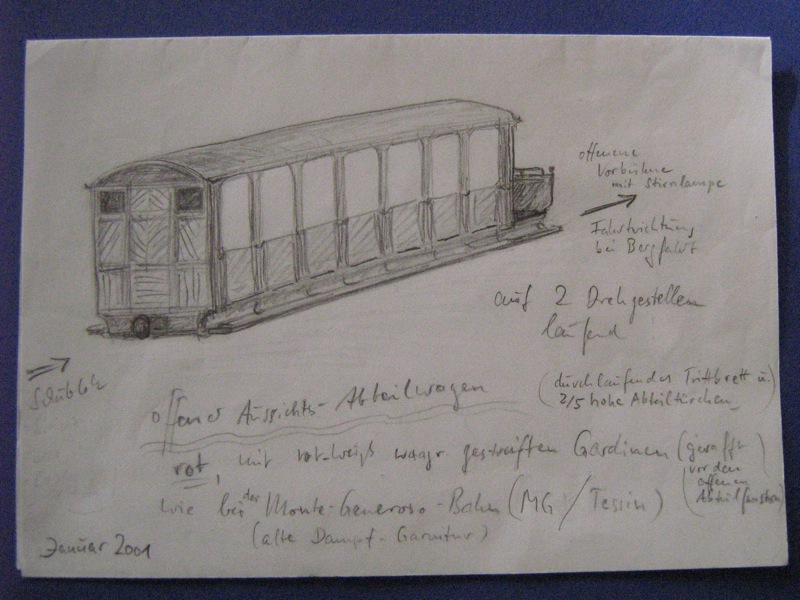 offenene
Vorbühne
mit Stirnlampe
Fahrtrichtung
bei Bergfahrt
auf 2 Drehgestellen
laufend
Schublok
(durchlaufendes Trittbrett u.
2/5 hohe Abteiltürchen)
offener Aussichts-Abteilwagen
rot, mit rot-weiß waagr. gestreiften Gardinen (gerafft
vor den
offenen
Abteilfenstern)
wie bei der Monte-Generoso-Bahn (MG/Tessin)
(alte Dampf-Garnitur)
Januar 2001